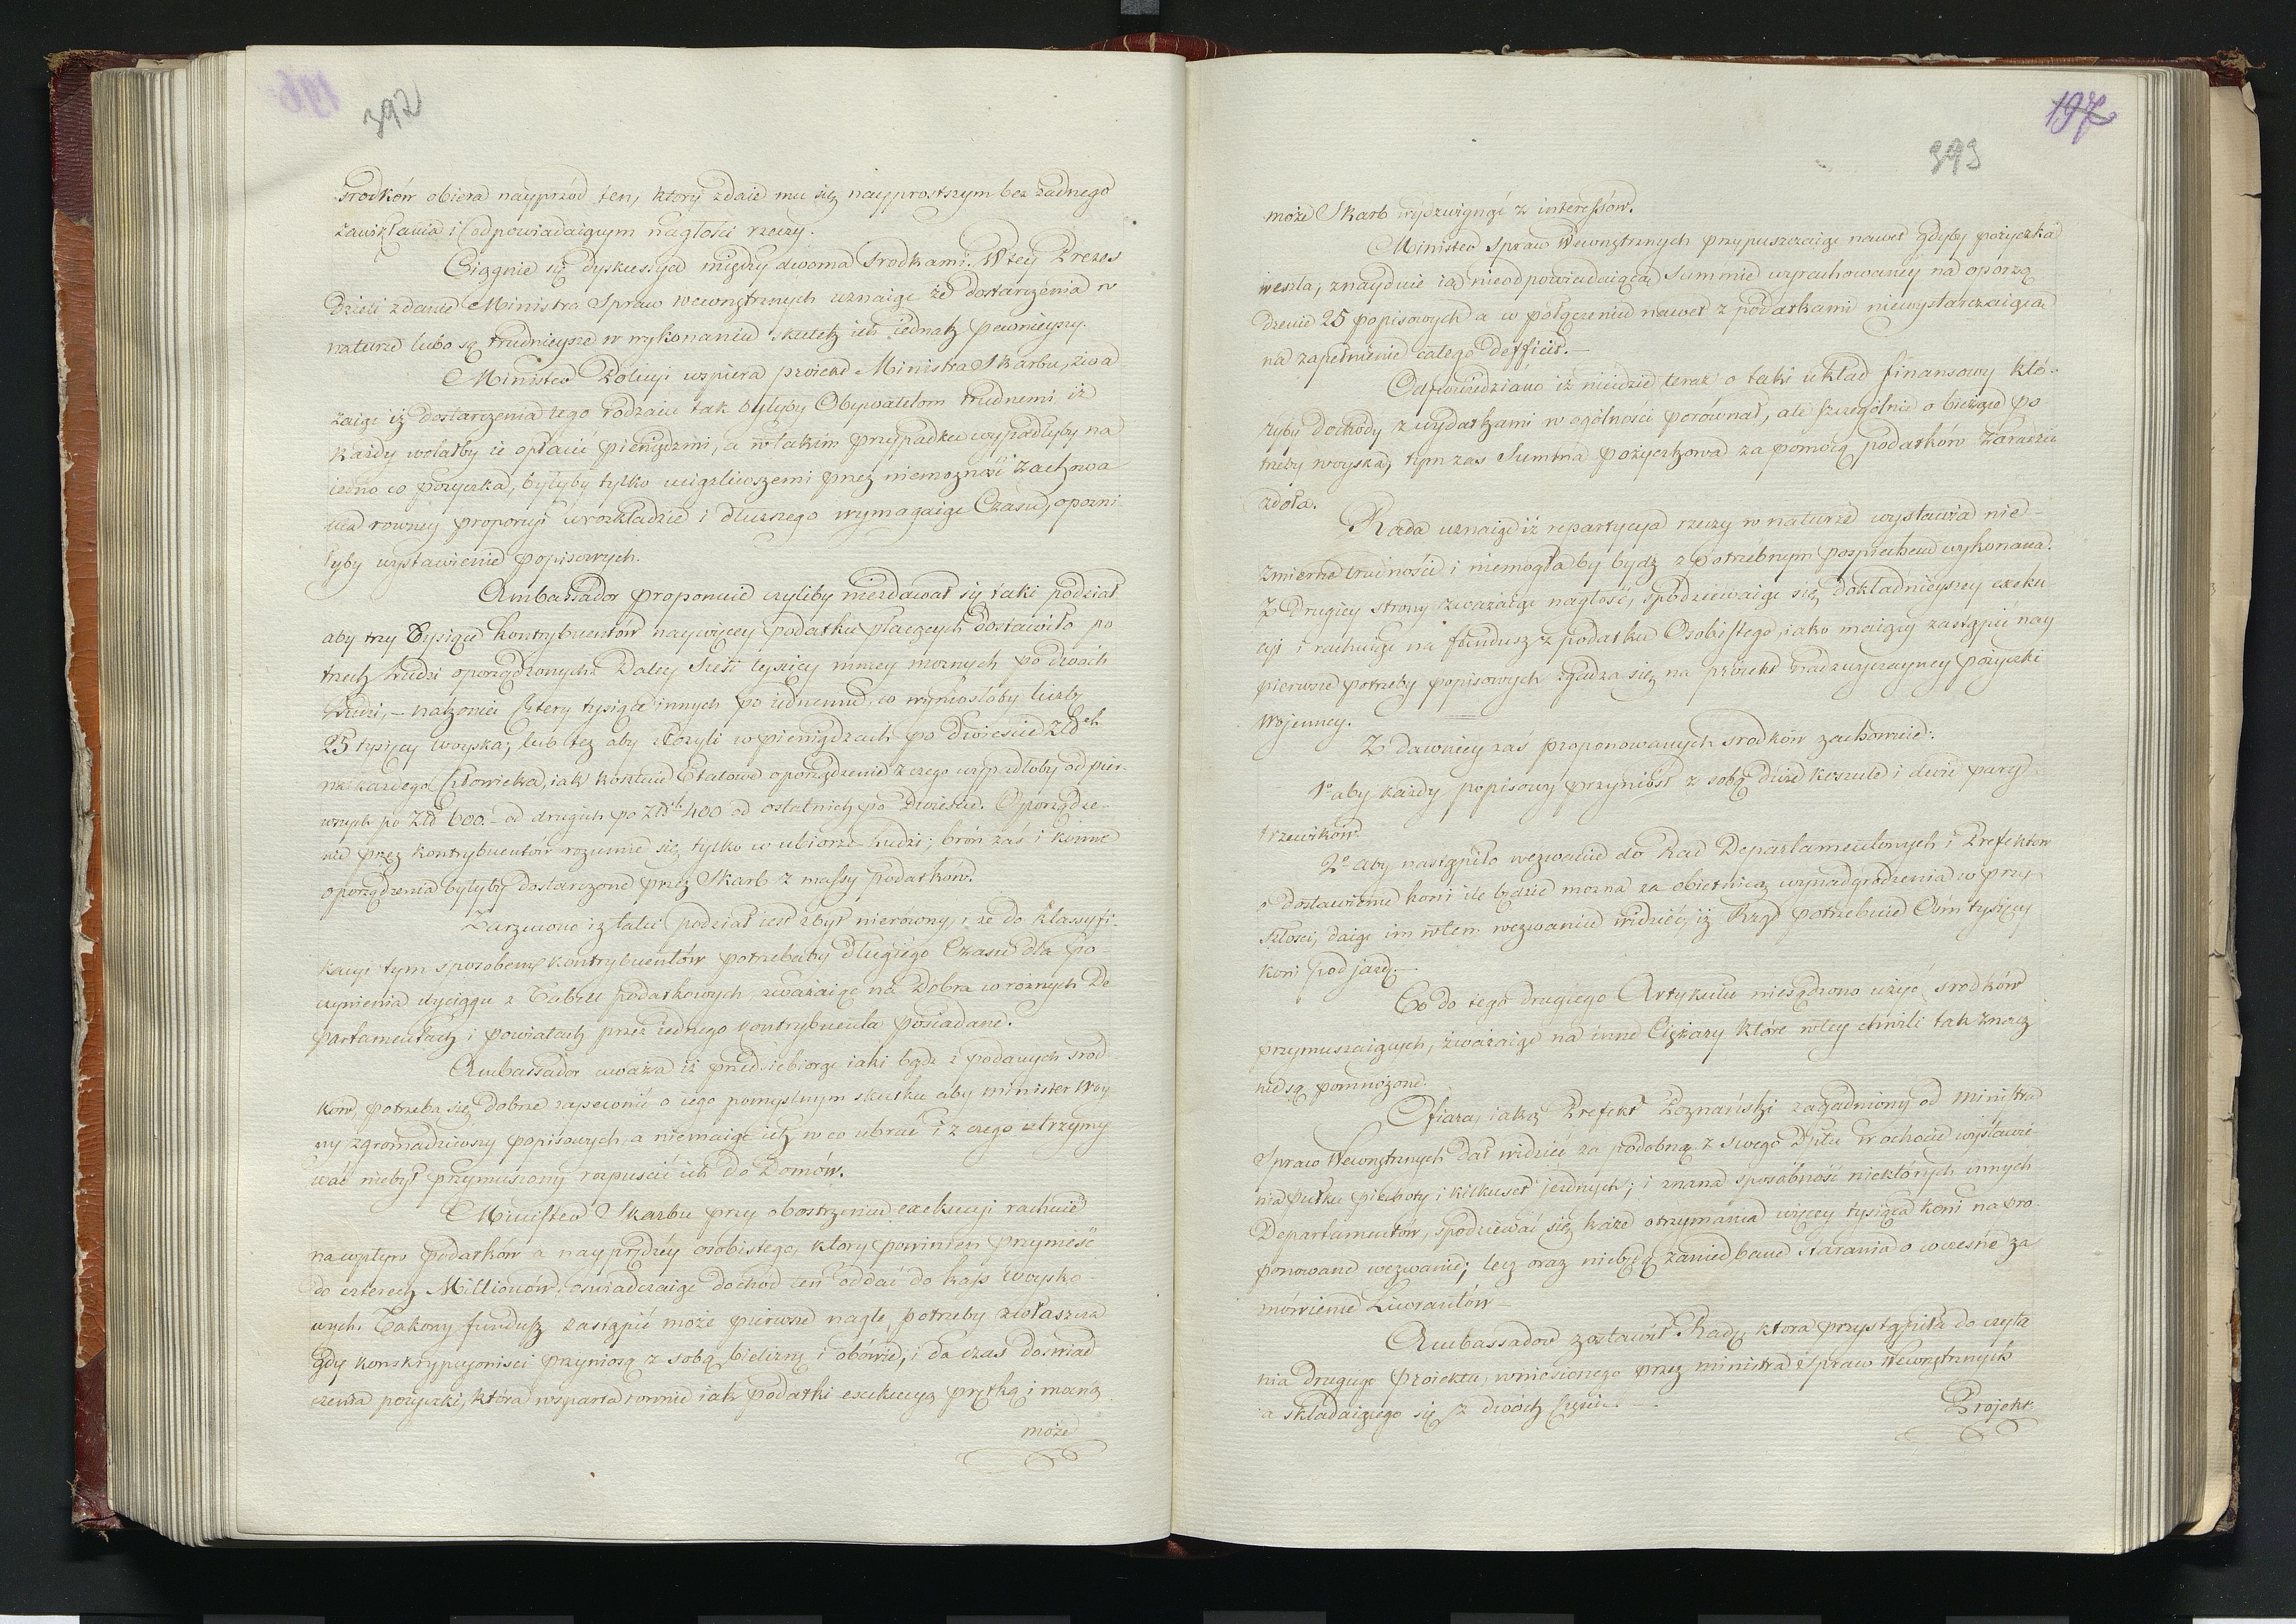 392
srodków obiera nayprzód ten, który zdaie mu się nayprostszym bez żadnego
zawikłania i odpowiadaiącym nagłości rzeczy.
Ciągnie się dyskussya między dwoma srodkami. W tey Prezes
dzieli zdanie Ministra Spraw wewnętrznych uznaiąc że dostarczenia w
naturze lubo są trudnieysze w wykonaniu skutek ich iednak pewnieyszy.
Minister Policyi wspiera proiekt Ministra Skarbu, zwa
żaiąc iż dostarczenia tego rodzaiu tak byłyby Obywatelom trudnemi iż
każdy wolałby ie opłacić pieniędzmi, a w takim przypadku wypadłyby na
iedno co pożyczka, byłyby tylko uciążliwszemi przez niemożność zachowa
nia rowney proporcyi w rozkładzie i dłuższego wymagaiąc Czasu, opozni
łyby wystawienie popisowych.
Ambassador proponuie czyliby niezdawał się taki podział
aby trzy Tysiące kontrybuentów naywięcey podatku płacących dostawiło po
trzech Ludzi oporządzonych. Daley Sześć tysięcy mniey możnych po dwóch
Ludzi, – nakoniec Cztery tysiące innych po iednemu, co wyniosłoby liczby
25 tysięcy woyska; lub też aby złożyli w pieniądzach po dwieście Złtch
na każdego Człowieka, iak kosztuie Etatowe oporządzenie z czego wypadłoby od pier-
wszych po Złt 600. – od drugich po Złtch 400 od ostatnich po dwieście. Oporządze-
nie przez kontrybuentów rozumie się tylko w ubiorze Ludzi; broń zaś i konne
oporządzenia byłyby dostarczone przez Skarb z massy podatków.
Zarzucono iż takie podział iest zbyt nierowny, i że do klassyfi-
kacyi tym sposobem kontrybuentów potrzebaby długiego Czasu dla po-
czynienia wyciągu z Tabell podatkowych, zważaiąc na Dobra w różnych De
partamentach i powiatach przez iednego kontrybuenta posiadane.
Ambassador uważa iż przedsiebiorąc iaki bądz z podanych srod
ków, potrzeba się dobrze zapewnić o iego pomyslnym skutku aby minister Woy
ny zgromadziwszy popisowych a niemaiąc ich w co ubrać i z czego utrzymy
wać niebył przymuszony rozpuścić ich do Domów.
Minister Skarbu przy obostrzeniu exekucyi rachuie
na wpływ podatków a nayprzdzéy osobistego, ktory powinien przynieść
do czterech Millionów, oswiadczaiąc dochod ten oddać do kass woysko-
wych. Takowy fundusz zastąpić może pierwsze nagłe, potrzeby zwłaszcza
gdy konskrypcyoniści przyniosą z sobą bieliznę i obówie, i da czas doświad
czenia pożyczki, która wsparta rownie iak podatki exekucyą prętką i mocną
może
197
393
może Skarb wydzwignąć z interessów.
Minister Spraw Wewnętrznych przypuszczaiąc nawet gdyby pożyczka
weszła, znayduie ią nieodpowiadaiącą Summie wyrachowaney na oporzą
dzenie 25 popisowych a w połączeniu nawet z podatkami niewystarczaiącą
na zapełnienie całego defficit. –
Odpowiedziano iż nieidzie teraz o taki układ finansowy któ-
ryby dochody z wydatkami w ogólności porównał, ale szczególnie o bieżące po
trzeby woyska, tym zas Summa pożyczkowa za pomocą podatków zaradzić
zdoła.
Rada uznaiąc iż repartycya rzeczy w naturze wystawia nie-
zmierne trudności i niemogłaby bydz z potrzebnym pospiechem wykonana.
Z drugiey strony zważaiąc nagłość, spodziewaiąc się dokładnieyszey exeku
cyi i rachuiąc na fundusz z podatku Osobistego, iako maiący zastąpić nay
pierwsze potrzeby popisowych zgadza się na proiekt nadzwyczayney pożyczki
Wojenney.
Z dawniey zaś proponowanych srodków zachowuie:
1o aby każdy popisowy przyniósł z sobą dwie koszule i dwie pary
trzewików.
2o aby nastąpiło wezwanie do Rad Departamentowych i Prefektow
o dostawienie koni ile będzie można za obietnicą wynadgrodzenia w przy
szłości, daiąc im w tem wezwaniu widzieć, iż Rząd potrzebuie Ośm tysięcy
koni pod jazdę. –
Co do tego drugiego Artykułu niesądzono użyć srodków
przymuszaiących, zważaiąc na inne Ciężary które w tey chwili tak znacz
nie są pomnożone.
Ofiara, iaką Prefekt Poznański zagadniony od Ministra
Spraw Wewnętrznych dał widzieć za podobną z swego Dptu w ochocie wystawie
nia pułku piechoty i kilkuset jezdnych; i znana sposobność niektórych innych
Departamentów, spodziewać się każe otrzymania więcey tysiąca koni na pro-
ponowane wezwanie; lecz oraz niebędą zaniedbane starania o wczesne za
mówienie Liwerantów –
Ambassador zostawił Radę ktora przystąpiła do czyta
nia drugiego Proiektu, wniesionego przez ministra Spraw Wewnętrznych
a składaiącego się z dwóch Części. –
Projekt